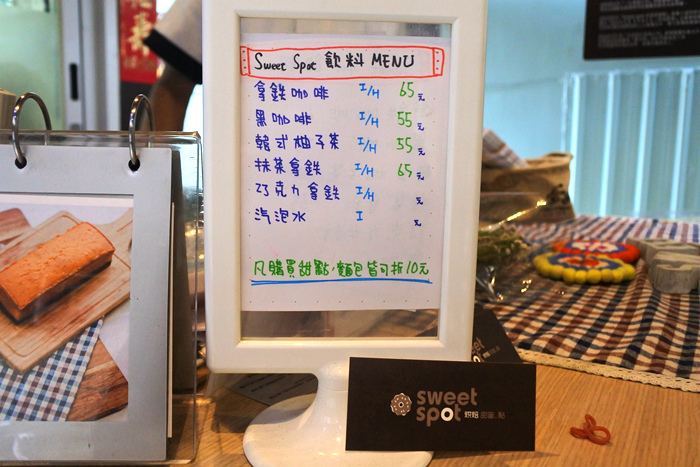 Sweet Spot 飲料 MENU
拿鐵咖啡 I/H 65元
黑咖啡 I/H 55元
韓式柚子茶 I/H 55元
抹茶拿鐵 I/H 65元
巧克力拿鐵 I/H 元
汽泡水 I 元
凡購買甜點,麵包皆可折10元
sweet
spot 烘焙